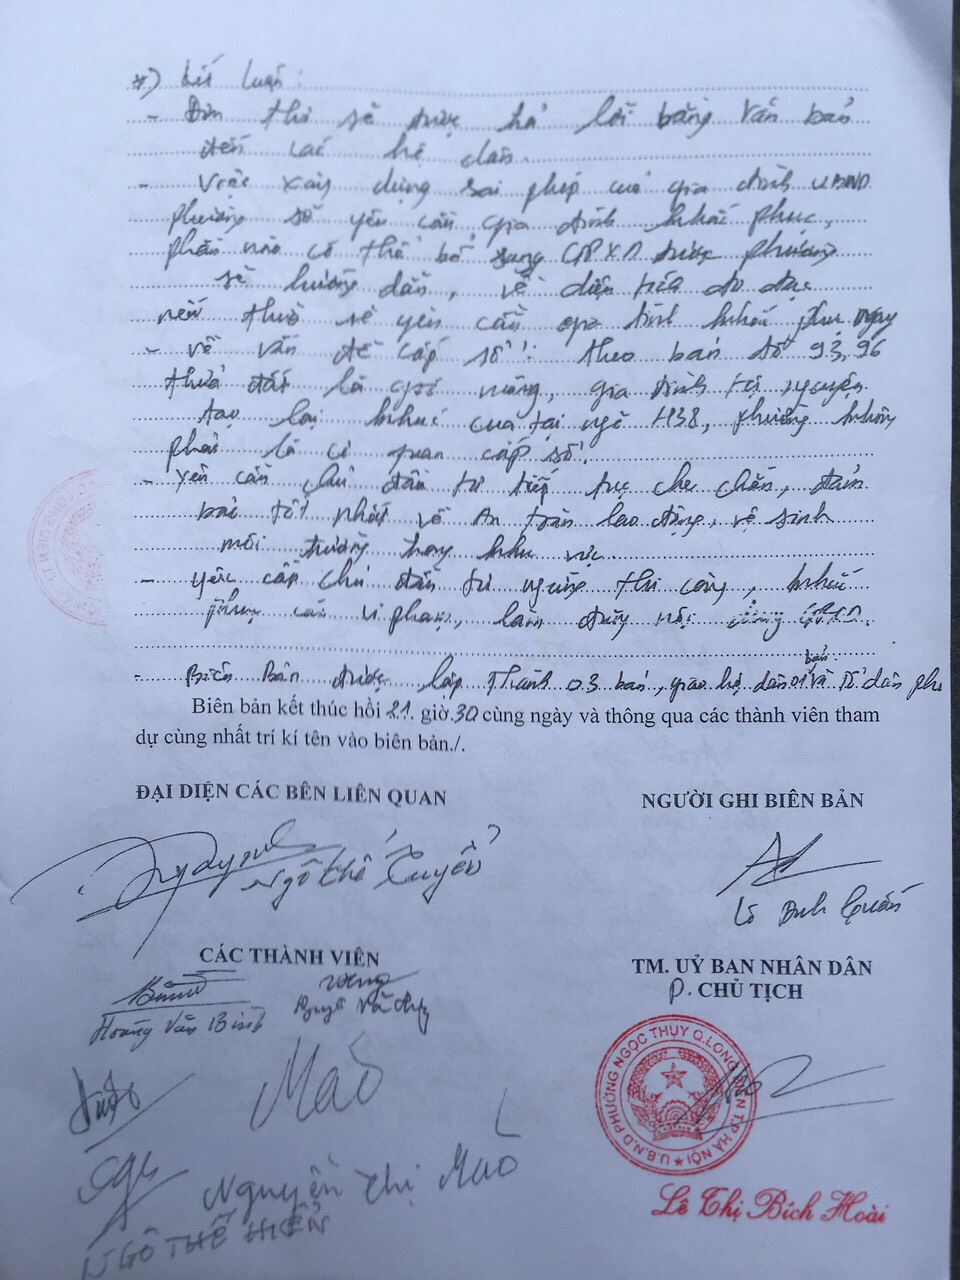 *) Kết luận:
- Đơn thư sẽ được trả lời bằng văn bản
đến các hộ dân.
- Việc xây dựng sai phép của gia đình UBND
phường sẽ yêu cầu gia đình khắc phục,
phần nào có thể bổ sung GPXD được phường
sẽ hướng dẫn, về diện tích đo đạc
nếu thừa sẽ yêu cầu gia đình khắc phục ngay
- Về vấn đề cấp sổ: theo bản đồ 93, 96
thửa đất là góc vuông, gia đình tự nguyện
tạo lại khúc cua tại ngõ 438, phường không
phải là cơ quan cấp sổ.
- Yêu cầu chủ đầu tư tiếp tục che chắn, đảm
bảo tốt nhất về An toàn lao động, vệ sinh
môi trường khu vực.
- Yêu cầu chủ đầu tư ngừng thi công, khắc
phục các vi phạm, làm đúng nội dung GPXD.
- Biên Bản được lập Thành 03 bản, giao hộ dân 01 bản và Tổ dân phố
Biên bản kết thúc hồi 21 giờ 30 cùng ngày và thông qua các thành viên tham
dự cùng nhất trí kí tên vào biên bản./.
ĐẠI DIỆN CÁC BÊN LIÊN QUAN
NGƯỜI GHI BIÊN BẢN
Ngô Thế Tuyển
Quân
CÁC THÀNH VIÊN
TM. UỶ BAN NHÂN DÂN
P. CHỦ TỊCH
Hoàng Văn Bình
Văn
Mao
Nguyễn Thị Mao
NGÔ THẾ HIỂN
U.B.N.D PHƯỜNG NGỌC THỤY Q.LONG BIÊN T.P HÀ NỘI
Lê Thị Bích Hoài